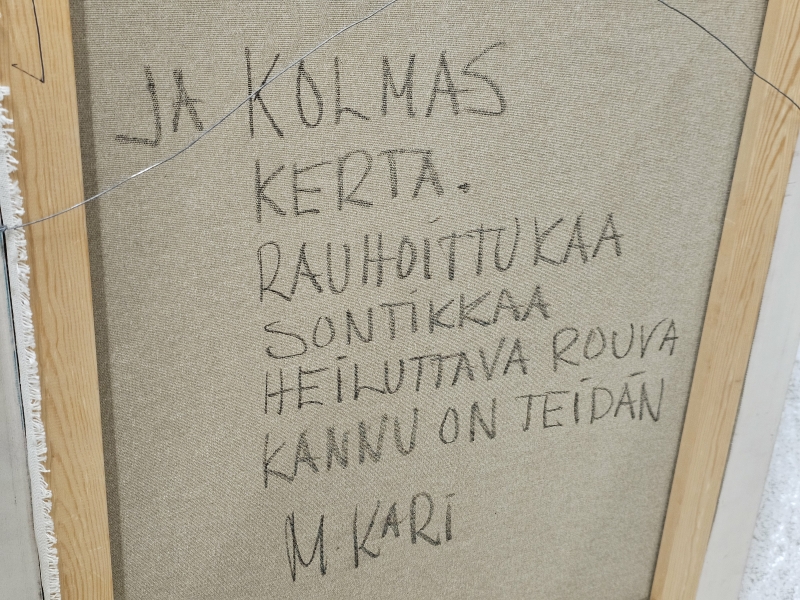 JA KOLMAS
KERTA.
RAUHOITTUKAA
SONTIKKAA
HEILUTTAVA ROUVA
KANNU ON TEIDÄN
M. KARI